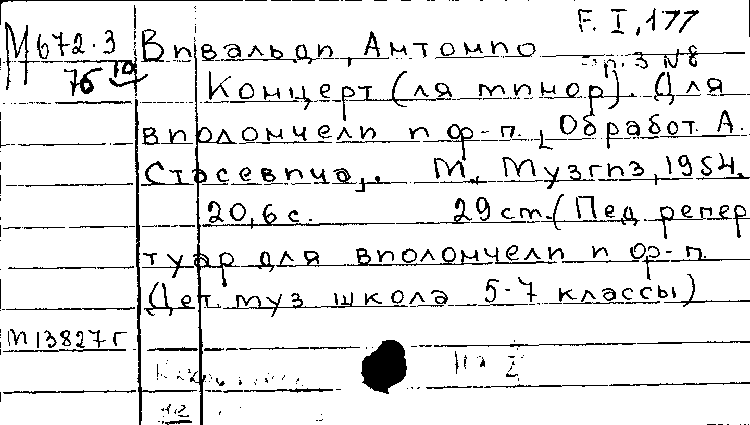 F. I, 177
М672.3 Вивальди, Антонио
76 10 оп. 3 №8
Концерт (ля минор). Для
виолончели и ф-п. Обработ. А.
Стасевича,. М., Музгиз, 1954.
20,6 с. 29 см. (Пед. репер
туар для виолончели и ф-п.
Дет. муз школа 5-7 классы)
М13827г
На I